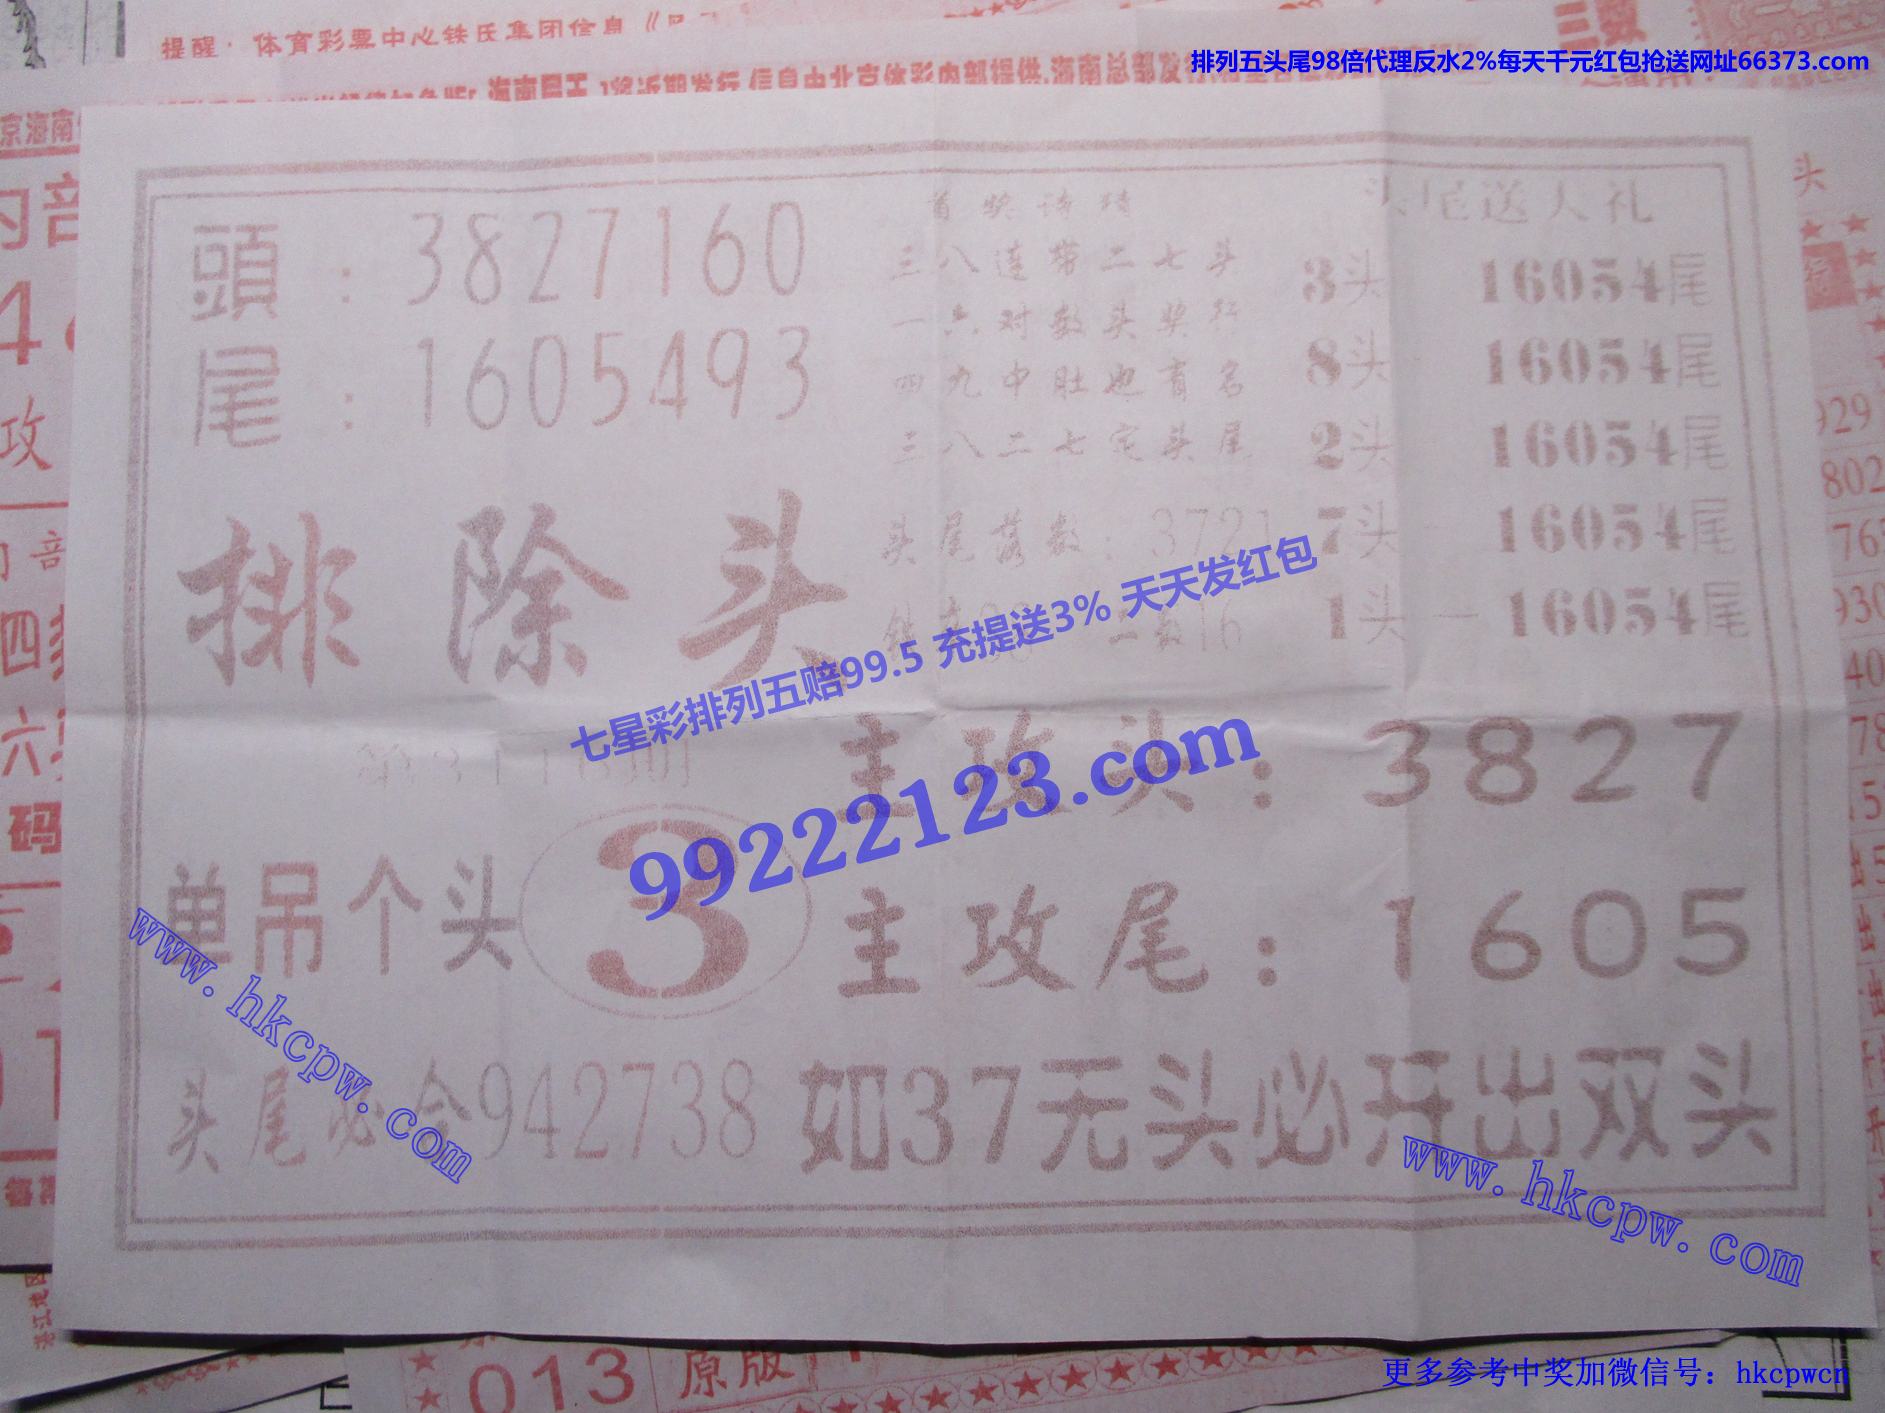 提醒：体育彩票中心铁氏集团信息
排列五头尾98倍代理反水2%每天千元红包抢送网址66373.com
信息由北京体彩内部提供,海南总部发行
頭：3827160
尾：1605493
三八连带二七头
一六对数头奖行
四九中肚也有名
三八二七定头尾
头尾落数：3721
头尾送大礼
3头 16054尾
8头 16054尾
2头 16054尾
7头 16054尾
1头 — 16054尾
排除头
七星彩排列五赔99.5 充提送3% 天天发红包
99222123.com
主攻头：3827
单吊个头 3
主攻尾：1605
头尾必合942738
如37无头必开出双头
www.hkcpw.com
www.hkcpw.com
013 原版
更多参考中奖加微信号：hkcpwcn